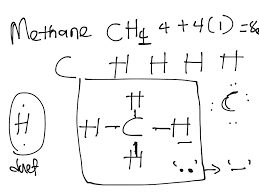 Methane CH4 4+4(1)=8e
C H H H H
H
H-C-H
H
H
duet
C